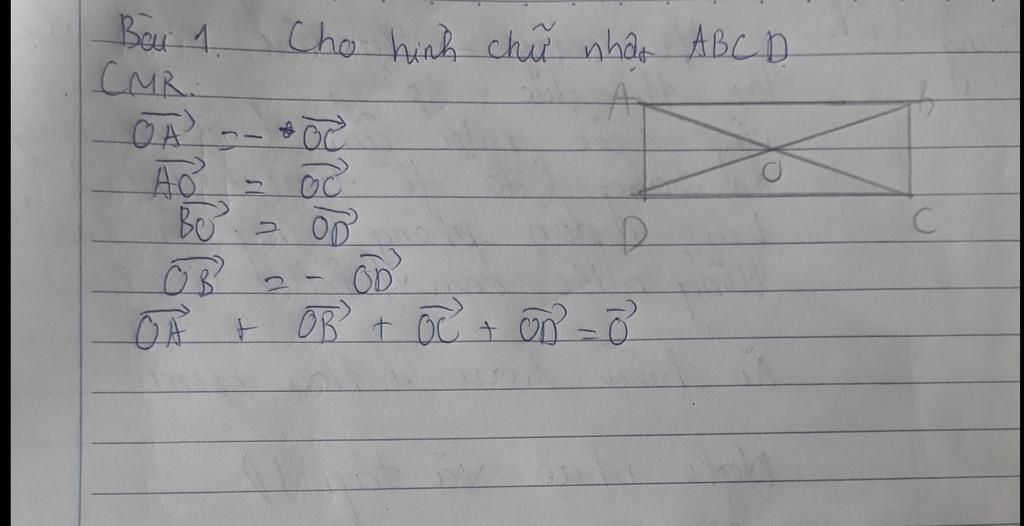 Bài 1. Cho hình chữ nhật ABCD
CMR.
A B
OA→ = - OC→
AO→ = OC→
O
BO→ = OD→
D C
OB→ = - OD→
OA→ + OB→ + OC→ + OD→ = O→